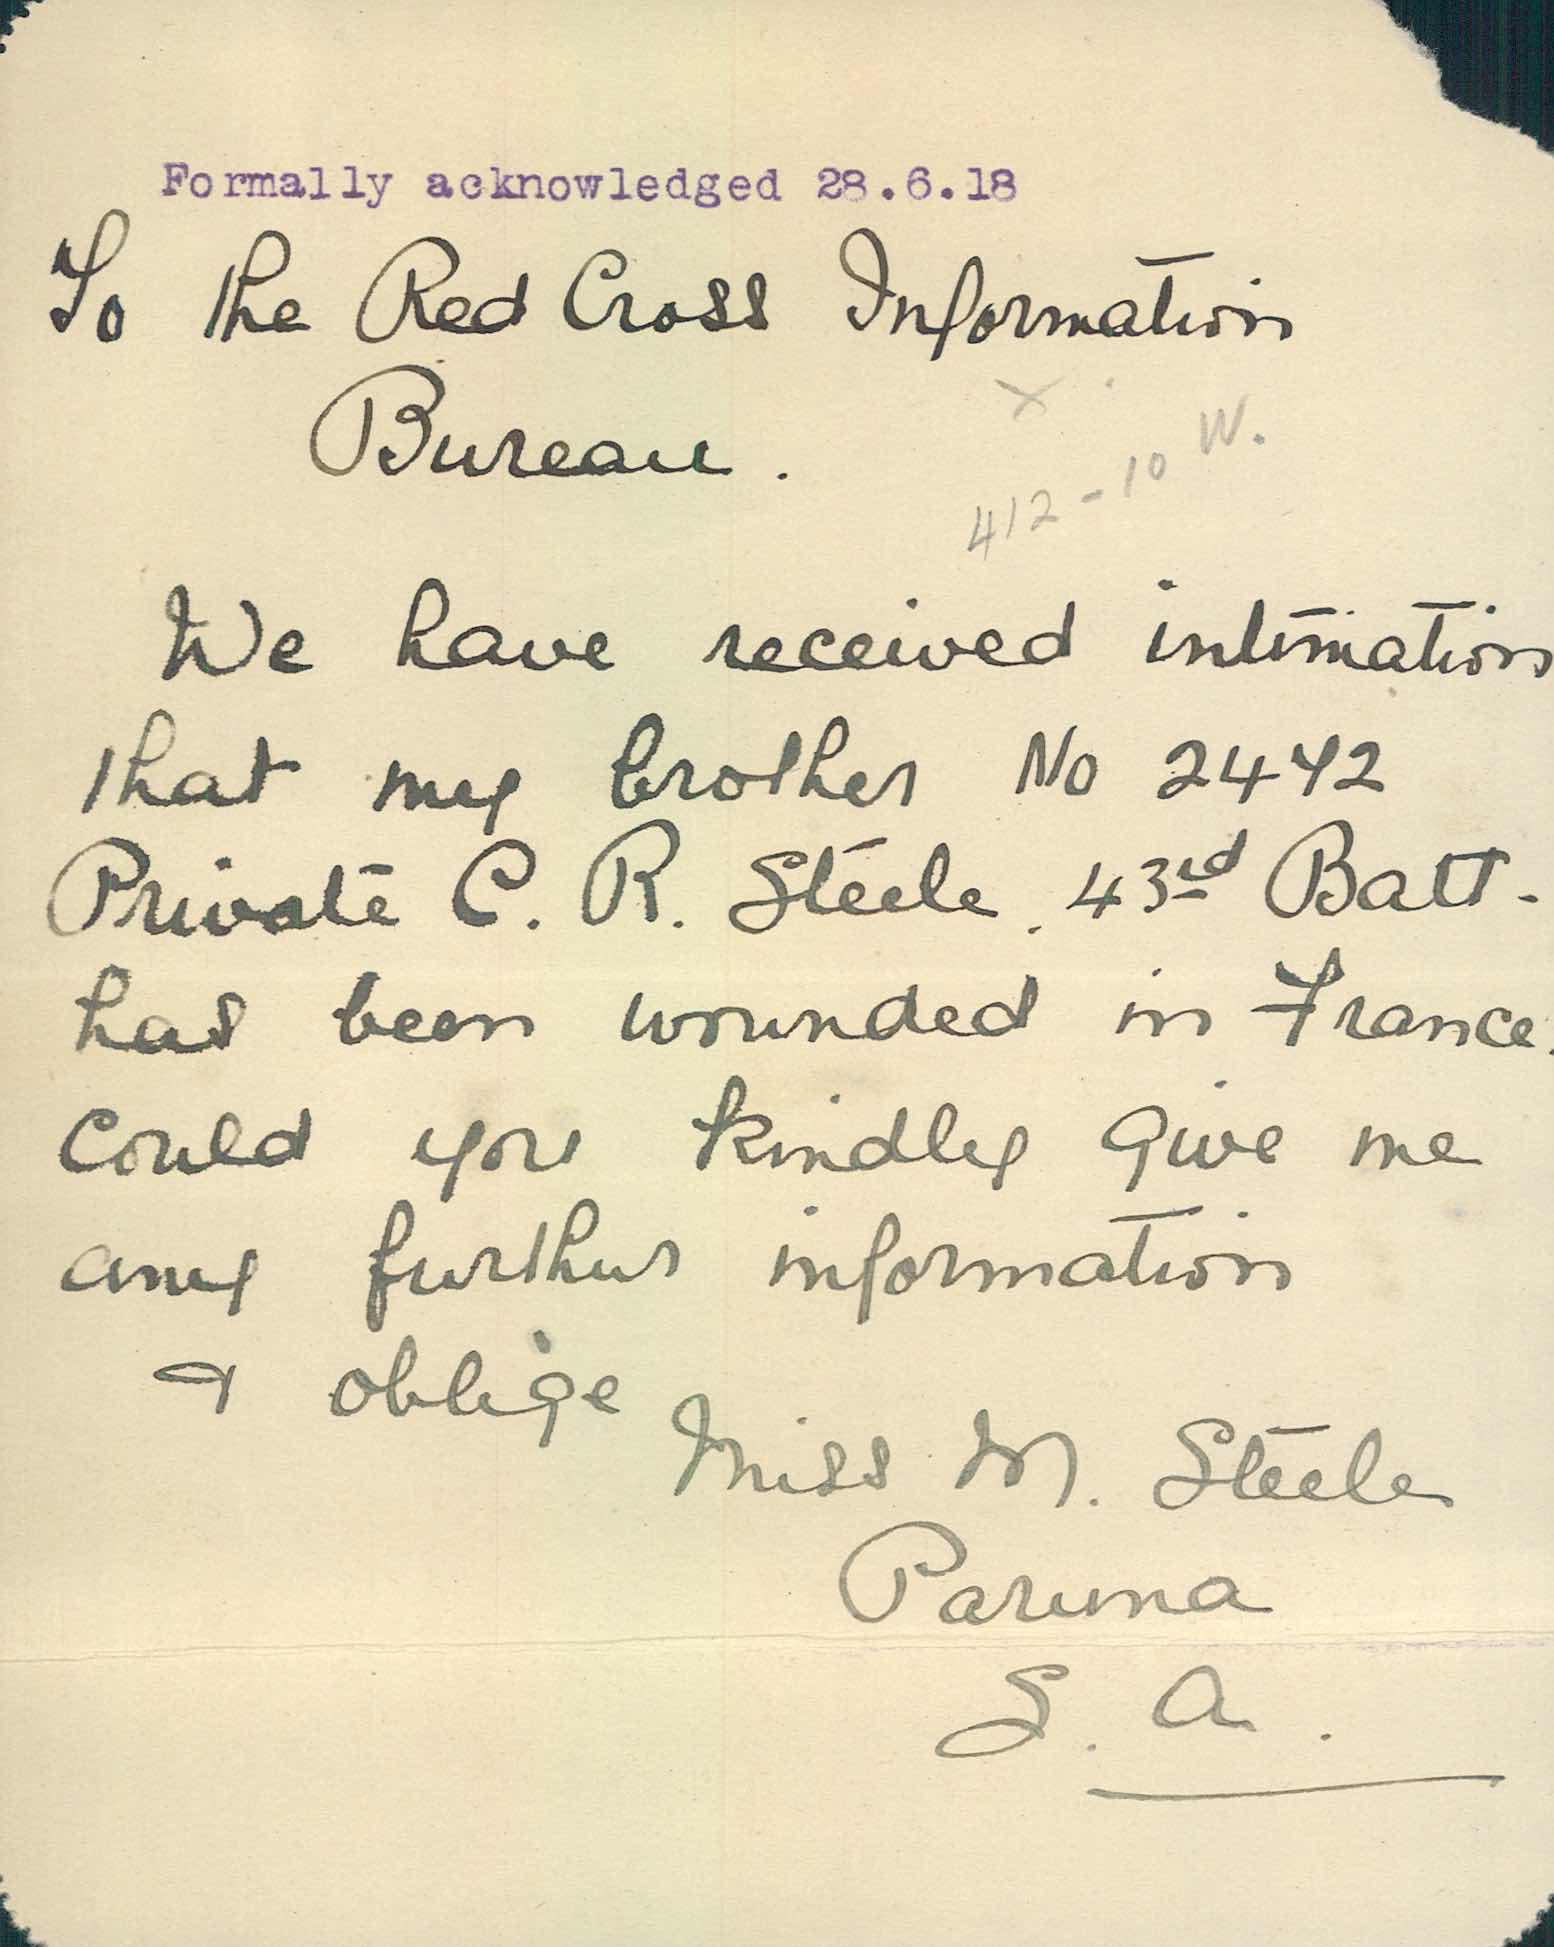 Formally acknowledged 28.6.18
To the Red Cross Information
Bureau.
X
412-10 W.
We have received intimation
that my brother No 2442
Private C. R. Steele. 43rd Batt.
has been wounded in France.
Could you kindly give me
any further information
& oblige
Miss M. Steele
Paruna
S. A.